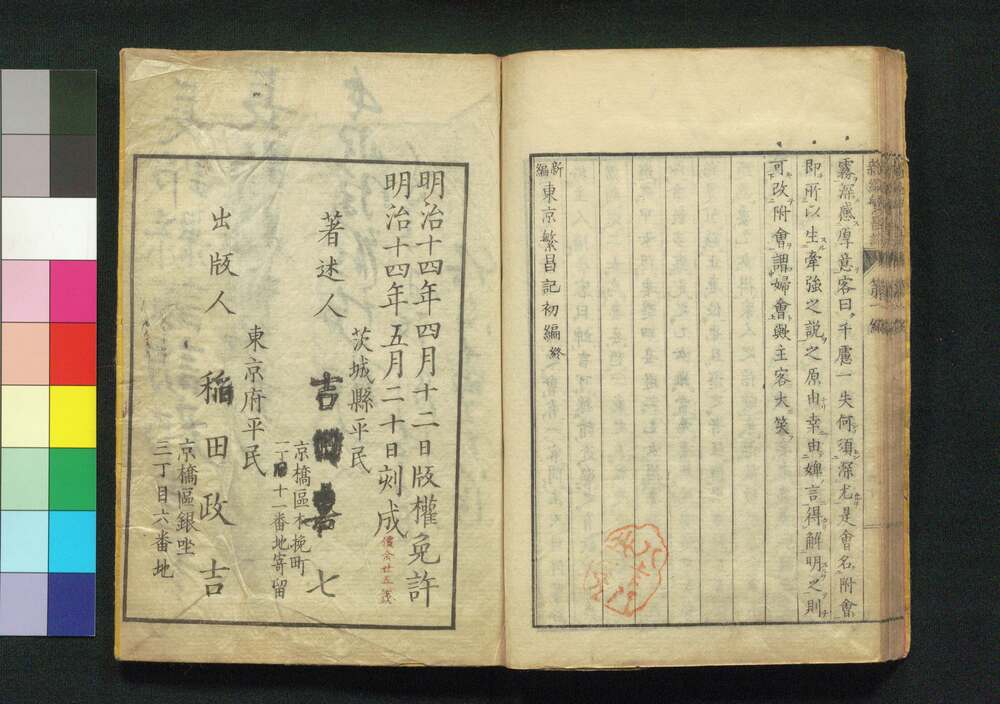 霧深感厚意客曰千慮一失何須深尤是會名附會
即所以生牽強之説之原由幸由婢言得解明之則
可改附會謂婦會歟主客大笑
新編東京繁昌記初編終
明治十四年四月十二日版權免許
明治十四年五月二十日刻成
價金廿五錢
茨城縣平民
著述人 吉 七
京橋區木挽町
一丁目十一番地寄留
東京府平民
出版人 稲田政吉
京橋區銀座
三丁目六番地